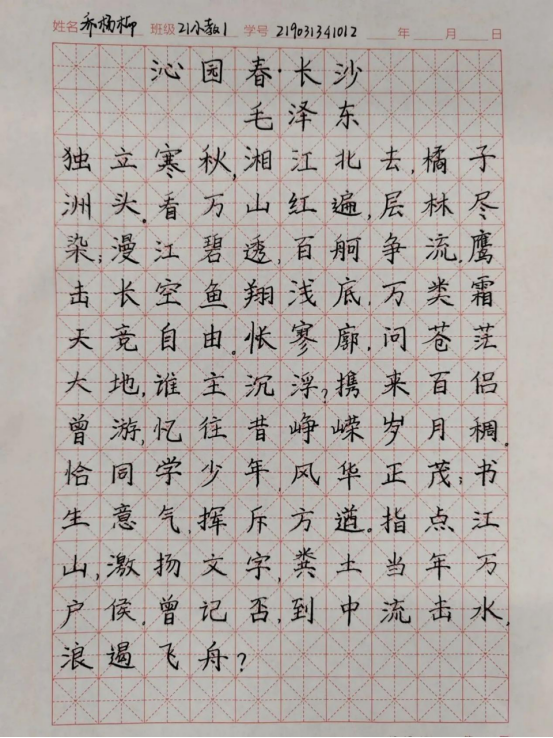 姓名 乔杨柳 班级 21小教1 学号 219031341012 年 月 日
沁园春·长沙
毛泽东
独立寒秋,湘江北去,橘子
洲头。看万山红遍,层林尽
染;漫江碧透,百舸争流,鹰
击长空鱼翔浅底,万类霜
天竞自由。怅寥廓,问苍茫
大地,谁主沉浮?携来百侣
曾游,忆往昔峥嵘岁月稠。
恰同学少年,风华正茂;书
生意气,挥斥方遒。指点江
山,激扬文字,粪土当年万
户侯,曾记否,到中流击水,
浪遏飞舟?